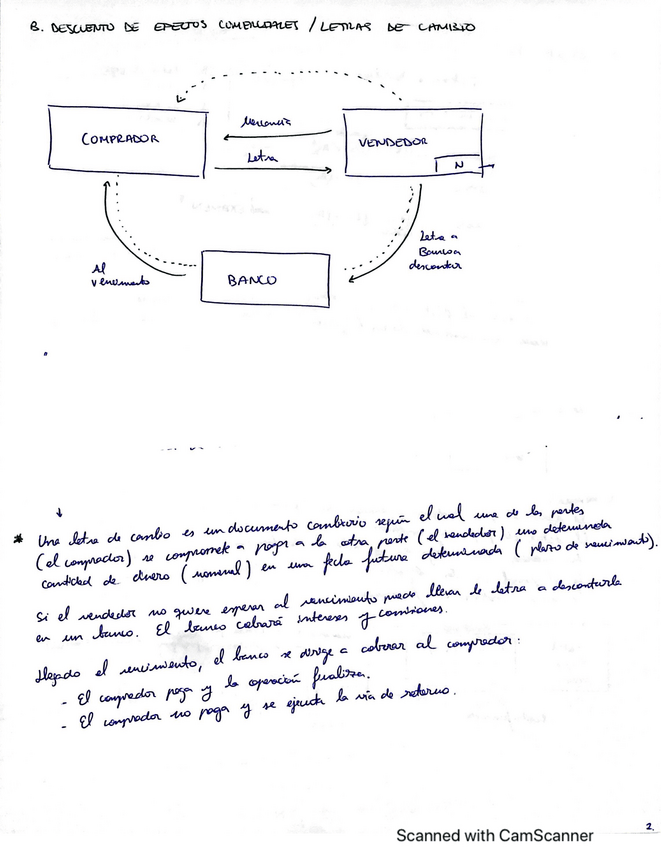 B. DESCUENTO DE EFECTOS COMERCIALES / LETRAS DE CAMBIO
COMPRADOR
Mercancía
Letra
VENDEDOR
N
Letra a
Banco a
descontar
Al
vencimiento
BANCO
* Una letra de cambio es un documento cambiario según el cual una de las partes
(el comprador) se compromete a pagar a la otra parte (el vendedor) una determinada
cantidad de dinero (nominal) en una fecha futura determinada (plazo de vencimiento).
Si el vendedor no quiere esperar al vencimiento puede llevar la letra a descontarla
en un banco. El banco cobrará intereses y comisiones.
Llegado el vencimiento, el banco se dirige a cobrar al comprador:
- El comprador paga y la operación finaliza.
- El comprador no paga y se ejecuta la vía de retorno.
2.
Scanned with CamScanner